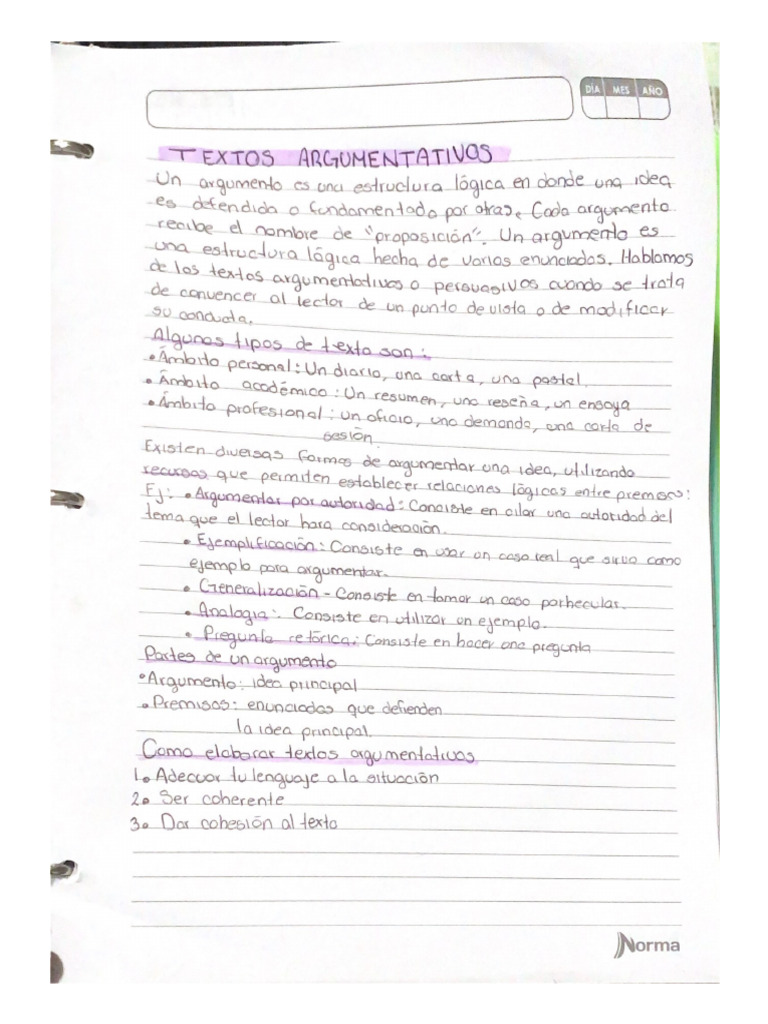 DÍA MES AÑO
TEXTOS ARGUMENTATIVOS
Un argumento es una estructura lógica en donde una idea
es defendida o fundamentada por otras. Cada argumento
recibe el nombre de "proposición". Un argumento es
una estructura lógica hecha de varios enunciados. Hablamos
de los textos argumentativos o persuasivos cuando se trata
de convencer al lector de un punto de vista o de modificar
su conducta.
Algunos tipos de texto son:
• Ámbito personal: Un diario, una carta, una postal.
• Ámbito académico: Un resumen, una reseña, un ensayo
• Ámbito profesional: un oficio, una demanda, una carta de
sesión.
Existen diversas formas de argumentar una idea, utilizando
recursos que permiten establecer relaciones lógicas entre premisas:
Ej: • Argumentar por autoridad: Consiste en citar una autoridad del
tema que el lector hara consideración.
• Ejemplificación: Consiste en usar un caso real que sirva como
ejemplo para argumentar.
• Generalización - Consiste en tomar un caso particular.
• Analogia: Consiste en utilizar un ejemplo.
• Pregunta retórica: Consiste en hacer una pregunta
Partes de un argumento
• Argumento: idea principal
• Premisas: enunciados que defienden
la idea principal.
Como elaborar textos argumentativos
1. Adecuar tu lenguaje a la situación
2. Ser coherente
3. Dar cohesión al texto
Norma